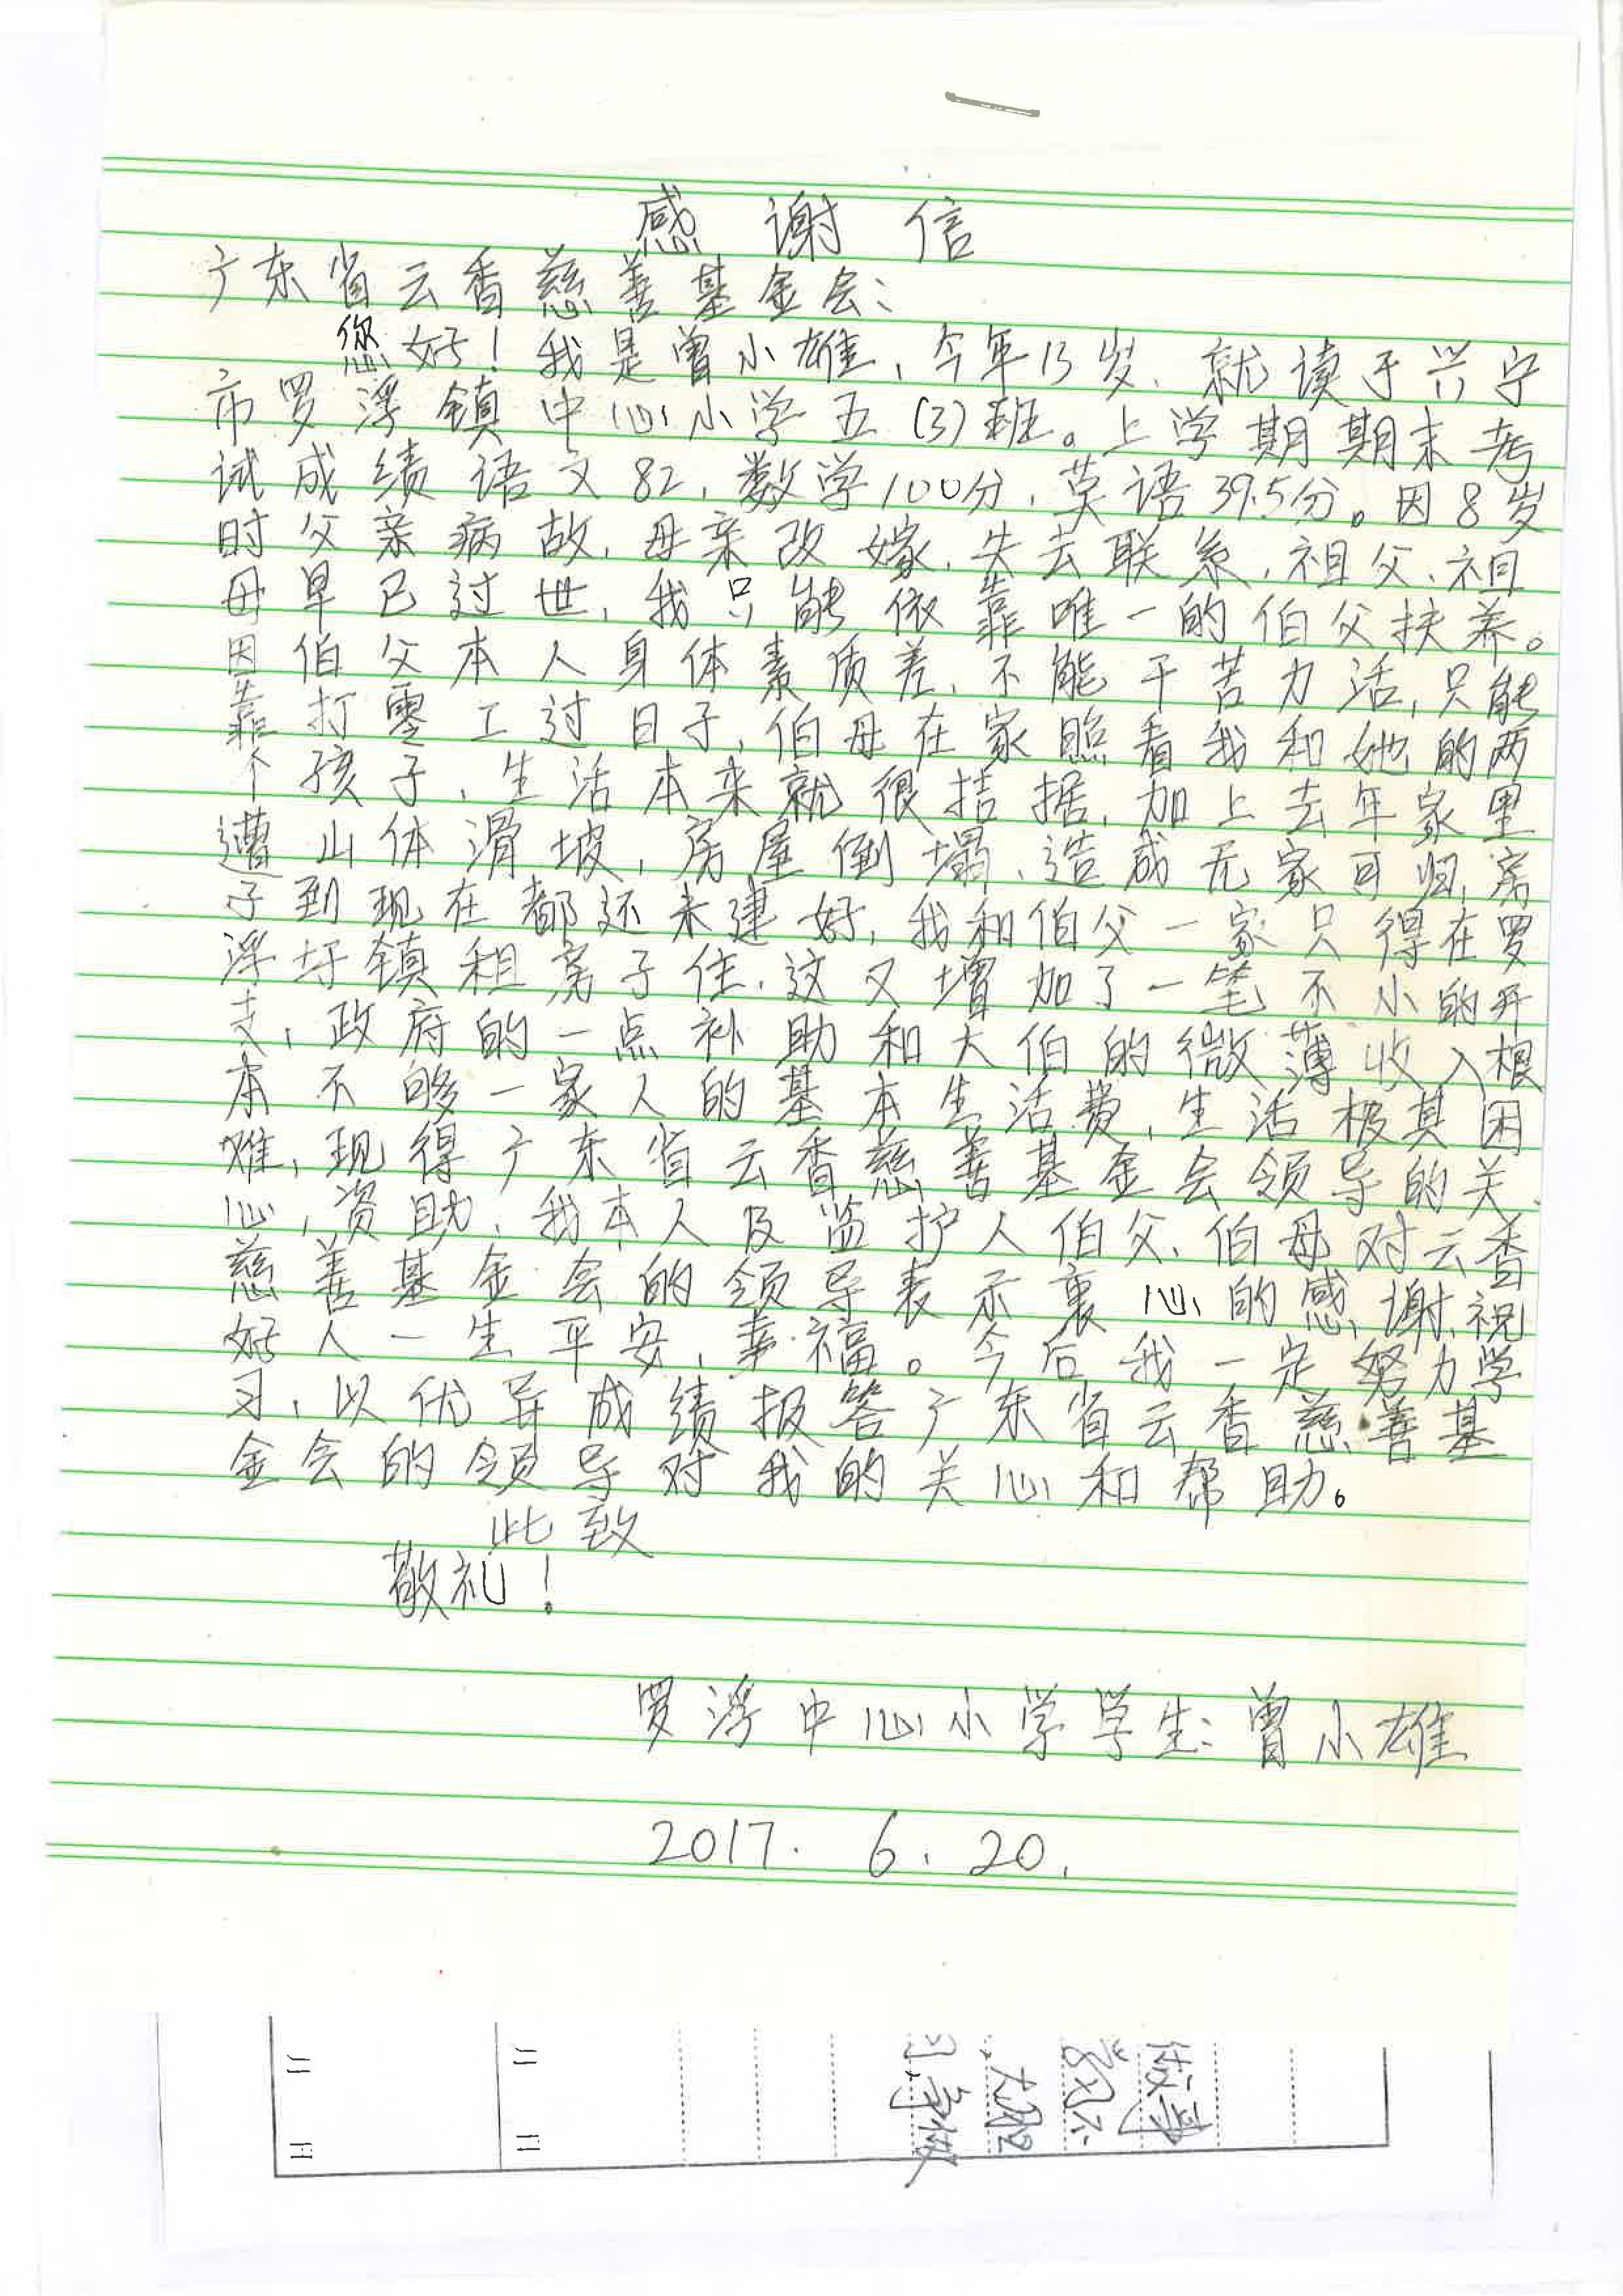 感谢信
广东省云香慈善基金会：
您好！我是曾小雄，今年13岁、就读于兴宁
市罗浮镇中心小学五（3）班。上学期期末考
试成绩语文82，数学100分，英语39.5分。因8岁
时父亲病故，母亲改嫁，失去联系，祖父、祖
母早已过世，我只能依靠唯一的伯父扶养。
因伯父本人身体素质差、不能干苦力活，只能
靠打零工过日子，伯母在家照看我和她的两
个孩子、生活本来就很拮据，加上去年家里
遭山体滑坡，房屋倒塌、造成无家可归，房
子到现在都还未建好，我和伯父一家只得在罗
浮圩镇租房子住，这又增加了一笔不小的开
支，政府的一点补助和大伯的微薄收入根
本不够一家人的基本生活费，生活极其困
难，现得广东省云香慈善基金会领导的关
心，资助，我本人及监护人伯父、伯母对云香
慈善基金会的领导表示衷心的感谢、祝
好人一生平安，幸福。今后我一定努力学
习，以优异成绩报答广东省云香慈善基
金会的领导对我的关心和帮助。
此致
敬礼！
罗浮中心小学学生：曾小雄
2017.6.20.
二 二
三 三